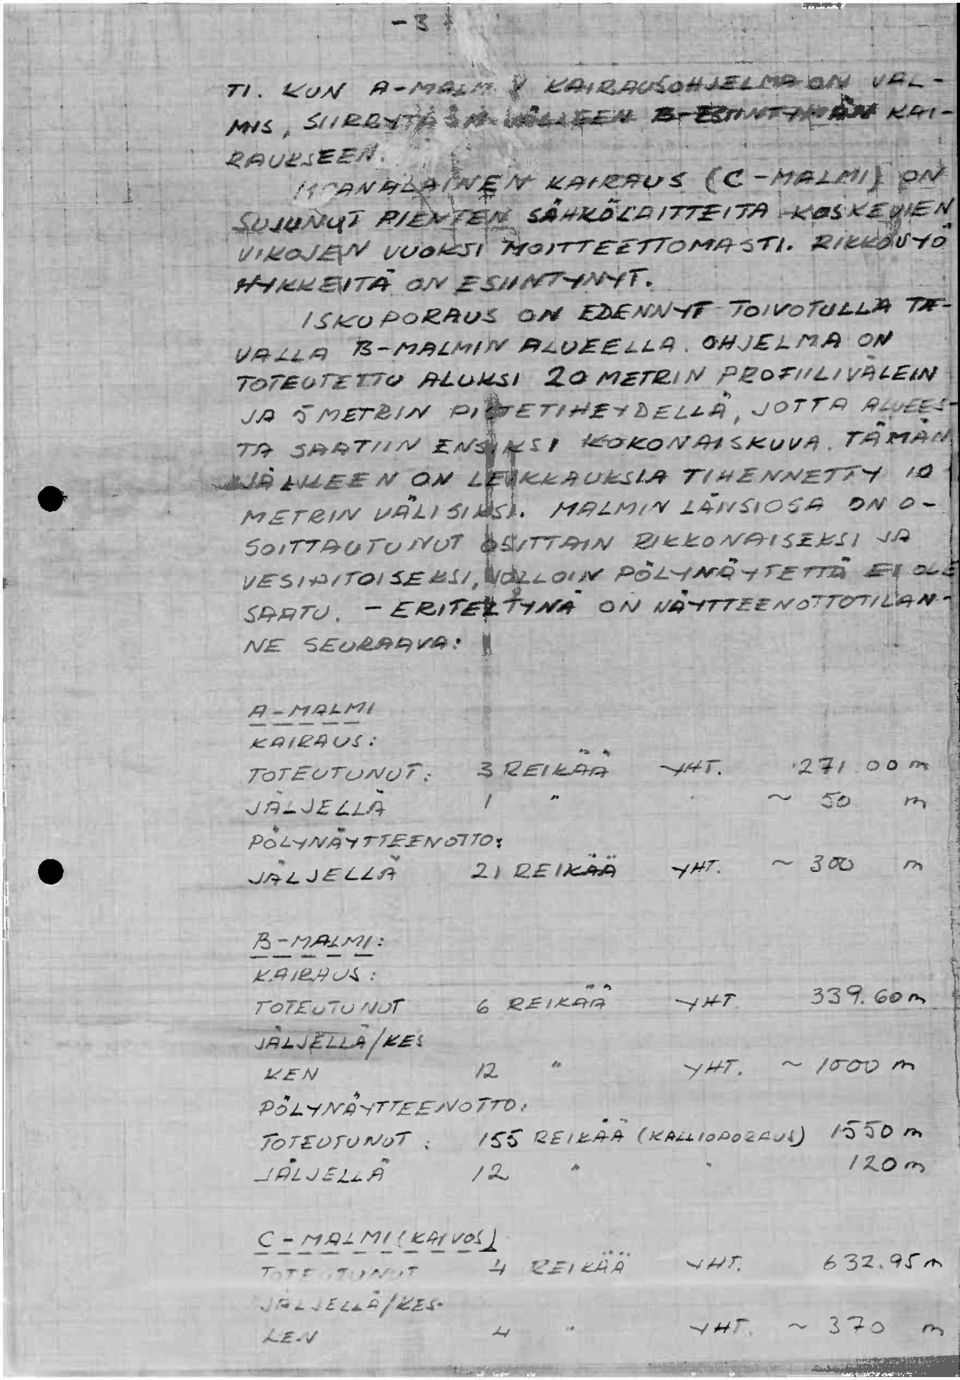 - 3
TI. KUN A-MALMIN KAIRAUSOHJELMA ON VAL-
MIS, SIIRRYTÄÄN JÄLLEEN B-ESIINTYMÄN KAI-
RAUKSEEN.
MAANALAINEN KAIRAUS (C-MALMI) ON
SUJUNUT PIENTEN SÄHKÖLAITTEITA KOSKEVIEN
VIKOJEN VUOKSI MOITTEETTOMASTI. RIKKOUTU
HYKKEITÄ ON ESIINTYNYT.
ISKUPORAUS ON EDENNYT TOIVOTULLA TA-
VALLA B-MALMIN ALUEELLA. OHJELMA ON
TOTEUTETTU ALUKSI 20 METRIN PROFIILIVÄLEIN
JA 5 METRIN PISTETIHEYDELLÄ, JOTTA ALUEES-
TA SAATIIN ENSIKSI KOKONAISKUVA. TÄMÄN
JÄLKEEN ON LEIKKAUKSIA TIHENNETTY 10
METRIN VÄLISIKSI. MALMIN LÄNSIOSA ON O-
SOITTAUTUNUT OSITTAIN RIKKONAISEKSI JA
VESIPITOISEKSI, JOLLOIN PÖLYNÄYTETTÄ EI OLE
SAATU. - ERITELTYNÄ ON NÄYTTEENOTTOTILAN-
NE SEURAAVA:
A-MALMI
KAIRAUS:
TOTEUTUNUT: 3 REIKÄÄ YHT. 271.00 m
JÄLJELLÄ 1 " ~ 50 m
PÖLYNÄYTTEENOTTO:
JÄLJELLÄ 21 REIKÄÄ YHT. ~ 300 m
B-MALMI:
KAIRAUS:
TOTEUTUNUT 6 REIKÄÄ YHT. 339.60 m
JÄLJELLÄ/KES
KEN 12 " YHT. ~ 1000 m
PÖLYNÄYTTEENOTTO:
TOTEUTUNUT: 155 REIKÄÄ (KALLIOPORAUS) 1550 m
JÄLJELLÄ 12 " " 120 m
C-MALMI (KAIVOS)
TOTEUTUNUT 4 REIKÄÄ YHT. 632.95 m
JÄLJELLÄ/KES-
KEN 4 " YHT. ~ 370 m